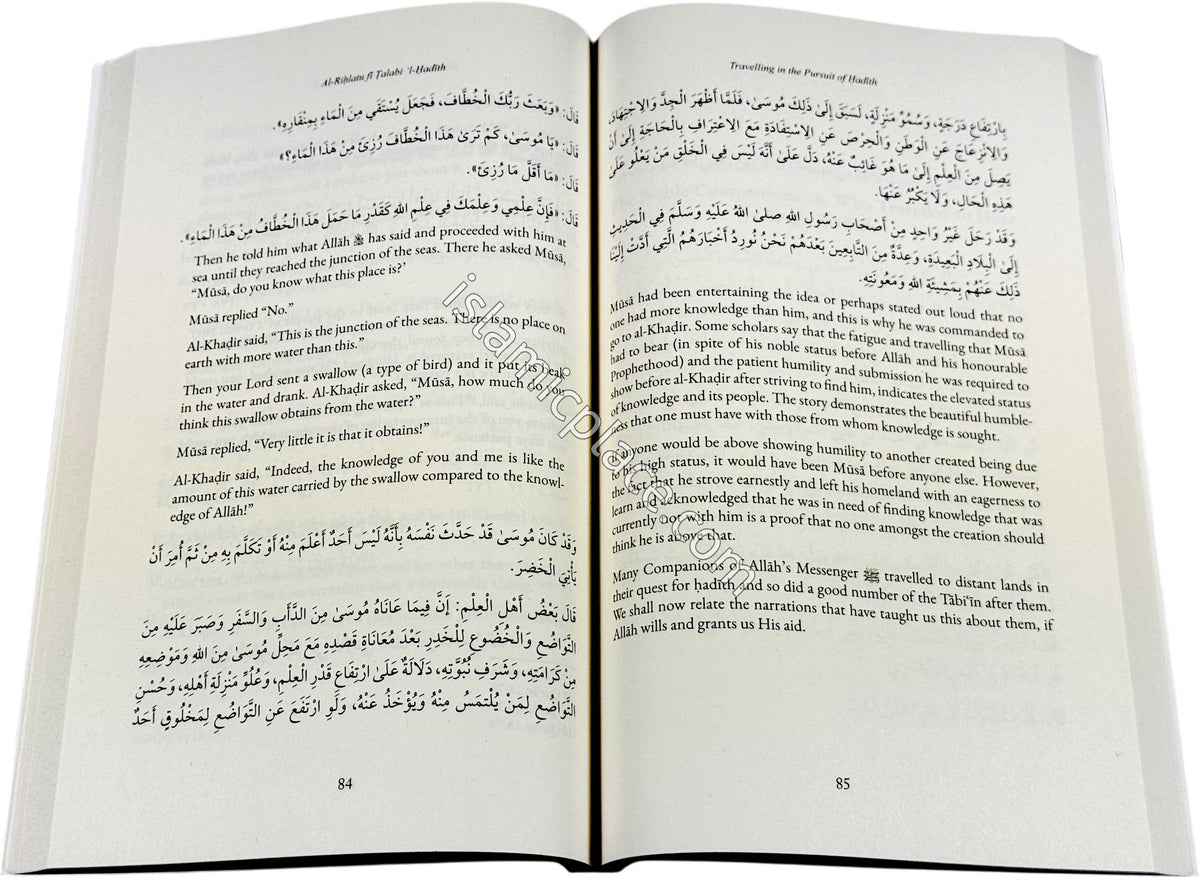 Al-Riḥlatu fī Ṭalabi 'l-Ḥadīth
قَالَ: «وَبَعَثَ رَبُّكَ الْخُطَّافَ، فَجَعَلَ يُسْتَقَي مِنَ الْمَاءِ بِمِنْقَارِهِ».
قَالَ: «يَا مُوسَىٰ، كَمْ تَرَىٰ هَذَا الْخُطَّافَ رُزِئَ مِنْ هَذَا الْمَاءِ؟»
قَالَ: «مَا أَقَلَّ مَا رُزِئَ».
قَالَ: «فَإِنَّ عِلْمِي وَعِلْمَكَ فِي عِلْمِ اللهِ كَقَدْرِ مَا حَمَلَ هَذَا الْخُطَّافُ مِنْ هَذَا الْمَاءِ».
Then he told him what Allāh ﷻ has said and proceeded with him at
sea until they reached the junction of the seas. There he asked Mūsā,
“Mūsā, do you know what this place is?’
Mūsā replied “No.”
Al-Khaḍir said, “This is the junction of the seas. There is no place on
earth with more water than this.”
Then your Lord sent a swallow (a type of bird) and it put its beak
in the water and drank. Al-Khaḍir asked, “Mūsā, how much do you
think this swallow obtains from the water?”
Mūsā replied, “Very little it is that it obtains!”
Al-Khaḍir said, “Indeed, the knowledge of you and me is like the
amount of this water carried by the swallow compared to the knowl-
edge of Allāh!”
وَقَدْ كَانَ مُوسَىٰ قَدْ حَدَّثَ نَفْسَهُ بِأَنَّهُ لَيْسَ أَحَدٌ أَعْلَمَ مِنْهُ أَوْ تَكَلَّمَ بِهِ مِنْ ثَمَّ أُمِرَ أَنْ
يَأْتِيَ الْخَضِرَ.
قَالَ بَعْضُ أَهْلِ الْعِلْمِ: إِنَّ فِيمَا عَانَاهُ مُوسَىٰ مِنَ الدَّأَبِ وَالسَّفَرِ وَصَبَرَ عَلَيْهِ مِنَ
التَّوَاضُعِ وَالْخُضُوعِ لِلْخَدِرِ بَعْدَ مُعَانَاةِ قَصْدِهِ مَعَ مَحِلِّ مُوسَىٰ مِنَ اللهِ وَمَوْضِعِهِ
مِنْ كَرَامَتِهِ، وَشَرَفِ نُبُوَّتِهِ، دَلَالَةٌ عَلَىٰ ارْتِفَاعِ قَدْرِ الْعِلْمِ، وَعُلُوِّ مَنْزِلَةِ أَهْلِهِ، وَحُسْنِ
التَّوَاضُعِ لِمَنْ يُلْتَمَسُ مِنْهُ وَيُؤْخَذُ عَنْهُ، وَلَوِ ارْتَفَعَ عَنِ التَّوَاضُعِ لِمَخْلُوقٍ أَحَدٌ
84
Travelling in the Pursuit of Ḥadīth
بِارْتِفَاعِ دَرَجَةٍ، وَسُمُوِّ مَنْزِلَةٍ، لَسَبَقَ إِلَىٰ ذَلِكَ مُوسَىٰ، فَلَمَّا أَظْهَرَ الْجِدَّ وَالِاجْتِهَادَ،
وَالِانْزِعَاجَ عَنِ الْوَطَنِ وَالْحِرْصَ عَنِ الِاسْتِفَادَةِ مَعَ الِاعْتِرَافِ بِالْحَاجَةِ إِلَىٰ أَنْ
يَصِلَ مِنَ الْعِلْمِ إِلَىٰ مَا هُوَ غَائِبٌ عَنْهُ، دَلَّ عَلَىٰ أَنَّهُ لَيْسَ فِي الْخَلْقِ مَنْ يَعْلُو عَلَىٰ
هَذِهِ الْحَالِ، وَلَا يَكْبُرُ عَنْهَا.
وَقَدْ رَحَلَ غَيْرُ وَاحِدٍ مِنْ أَصْحَابِ رَسُولِ اللهِ صلىٰ اللهُ عَلَيْهِ وَسَلَّمَ فِي الْحَدِيثِ
إِلَىٰ الْبِلَادِ الْبَعِيدَةِ، وَعِدَّةٌ مِنَ التَّابِعِينَ بَعْدَهُمْ نَحْنُ نُورِدُ أَخْبَارَهُمُ الَّتِي أَدَّتْ إِلَيْنَا
ذَلِكَ عَنْهُمْ بِمَشِيئَةِ اللهِ وَمَعُونَتِهِ.
Mūsā had been entertaining the idea or perhaps stated out loud that no
one had more knowledge than him, and this is why he was commanded to
go to al-Khaḍir. Some scholars say that the fatigue and travelling that Mūsā
had to bear (in spite of his noble status before Allāh and his honourable
Prophethood) and the patient humility and submission he was required to
show before al-Khaḍir after striving to find him, indicates the elevated status
of knowledge and its people. The story demonstrates the beautiful humble-
ness that one must have with those from whom knowledge is sought.
If anyone would be above showing humility to another created being due
to his high status, it would have been Mūsā before anyone else. However,
the fact that he strove earnestly and left his homeland with an eagerness to
learn and acknowledged that he was in need of finding knowledge that was
currently not with him is a proof that no one amongst the creation should
think he is above that.
Many Companions of Allāh’s Messenger ﷺ travelled to distant lands in
their quest for ḥadīth and so did a good number of the Tābi‘īn after them.
We shall now relate the narrations that have taught us this about them, if
Allāh wills and grants us His aid.
85
islamicplace.com